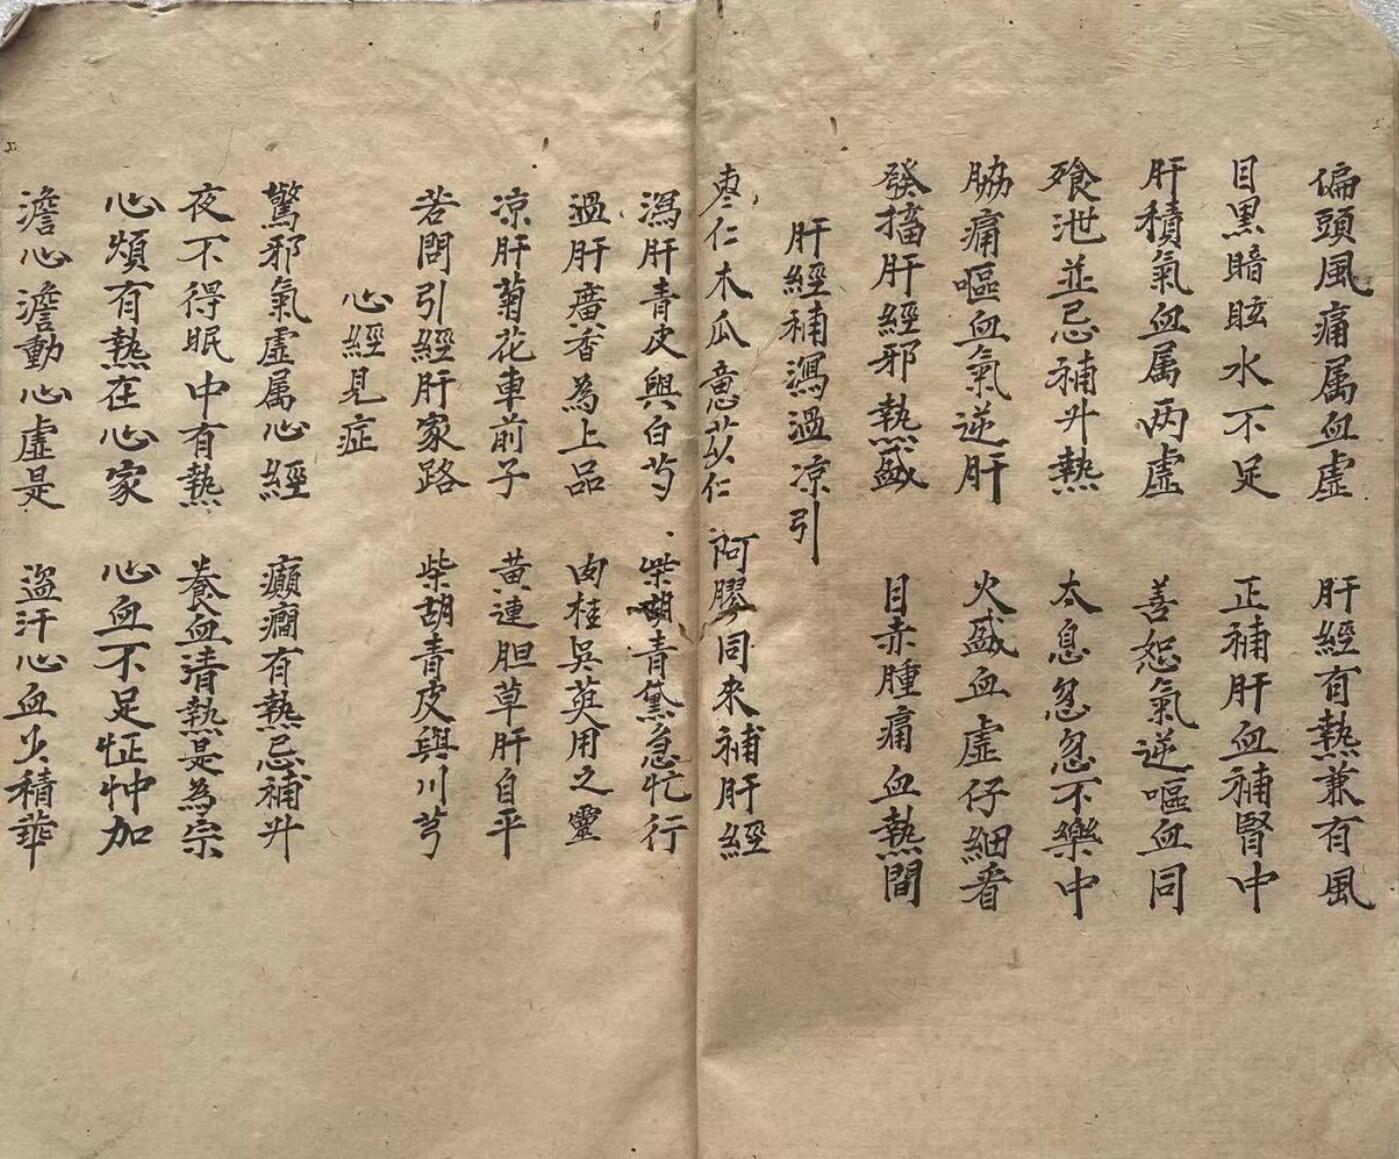 偏頭風痛属血虚 肝經有熱兼有風
目黒暗眩水不足 正補肝血補腎中
肝積氣血属两虚 善怒氣逆嘔血同
飱泄並忌補升熱 太息忽忽不樂中
脇痛嘔血氣逆肝 火盛血虚仔細看
發搐肝經邪熱盛 目赤腫痛血熱間
肝經補瀉温凉引
枣仁木瓜意苡仁 阿膠同來補肝經
瀉肝青皮與白芍 柴胡青黛急忙行
温肝廣香為上品 肉桂吳萸用之靈
凉肝菊花車前子 黄連胆草肝自平
若問引經肝家路 柴胡青皮與川芎
心經見症
驚邪氣虚属心經 癲癎有熱忌補升
夜不得眠中有熱 養血清熱是為宗
心煩有熱在心家 心血不足怔忡加
澹心澹動心虚是 盗汗心血少積華